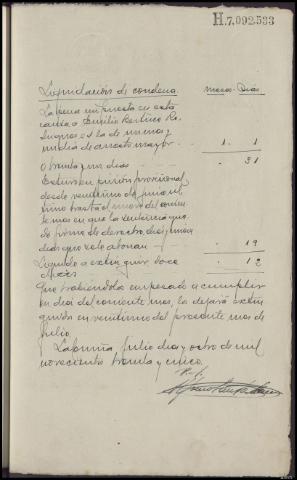 H.7,092,533
Liquidación de condena. Meses - Dias
La pena impuesta en esta
causa a Emilio
es la de un mes y
un dia de arresto mayor 1 . 1
o treinta y un dias . 31
Estuvo en prisión provisional
desde veintiuno de junio úl
timo hasta el nueve del corrien
te mes en que la sentencia que
se firme son diez y nueve
dias que se le abonan - . 19
Liquido a extinguir doce
. 12
Que habiéndola empezado a cumplir
en diez del corriente mes, la dejará extin
guida en veintiuno del presente mes de
Julio.
La Coruña, Julio diez y ocho de mil
novecientos treinta y cinco.